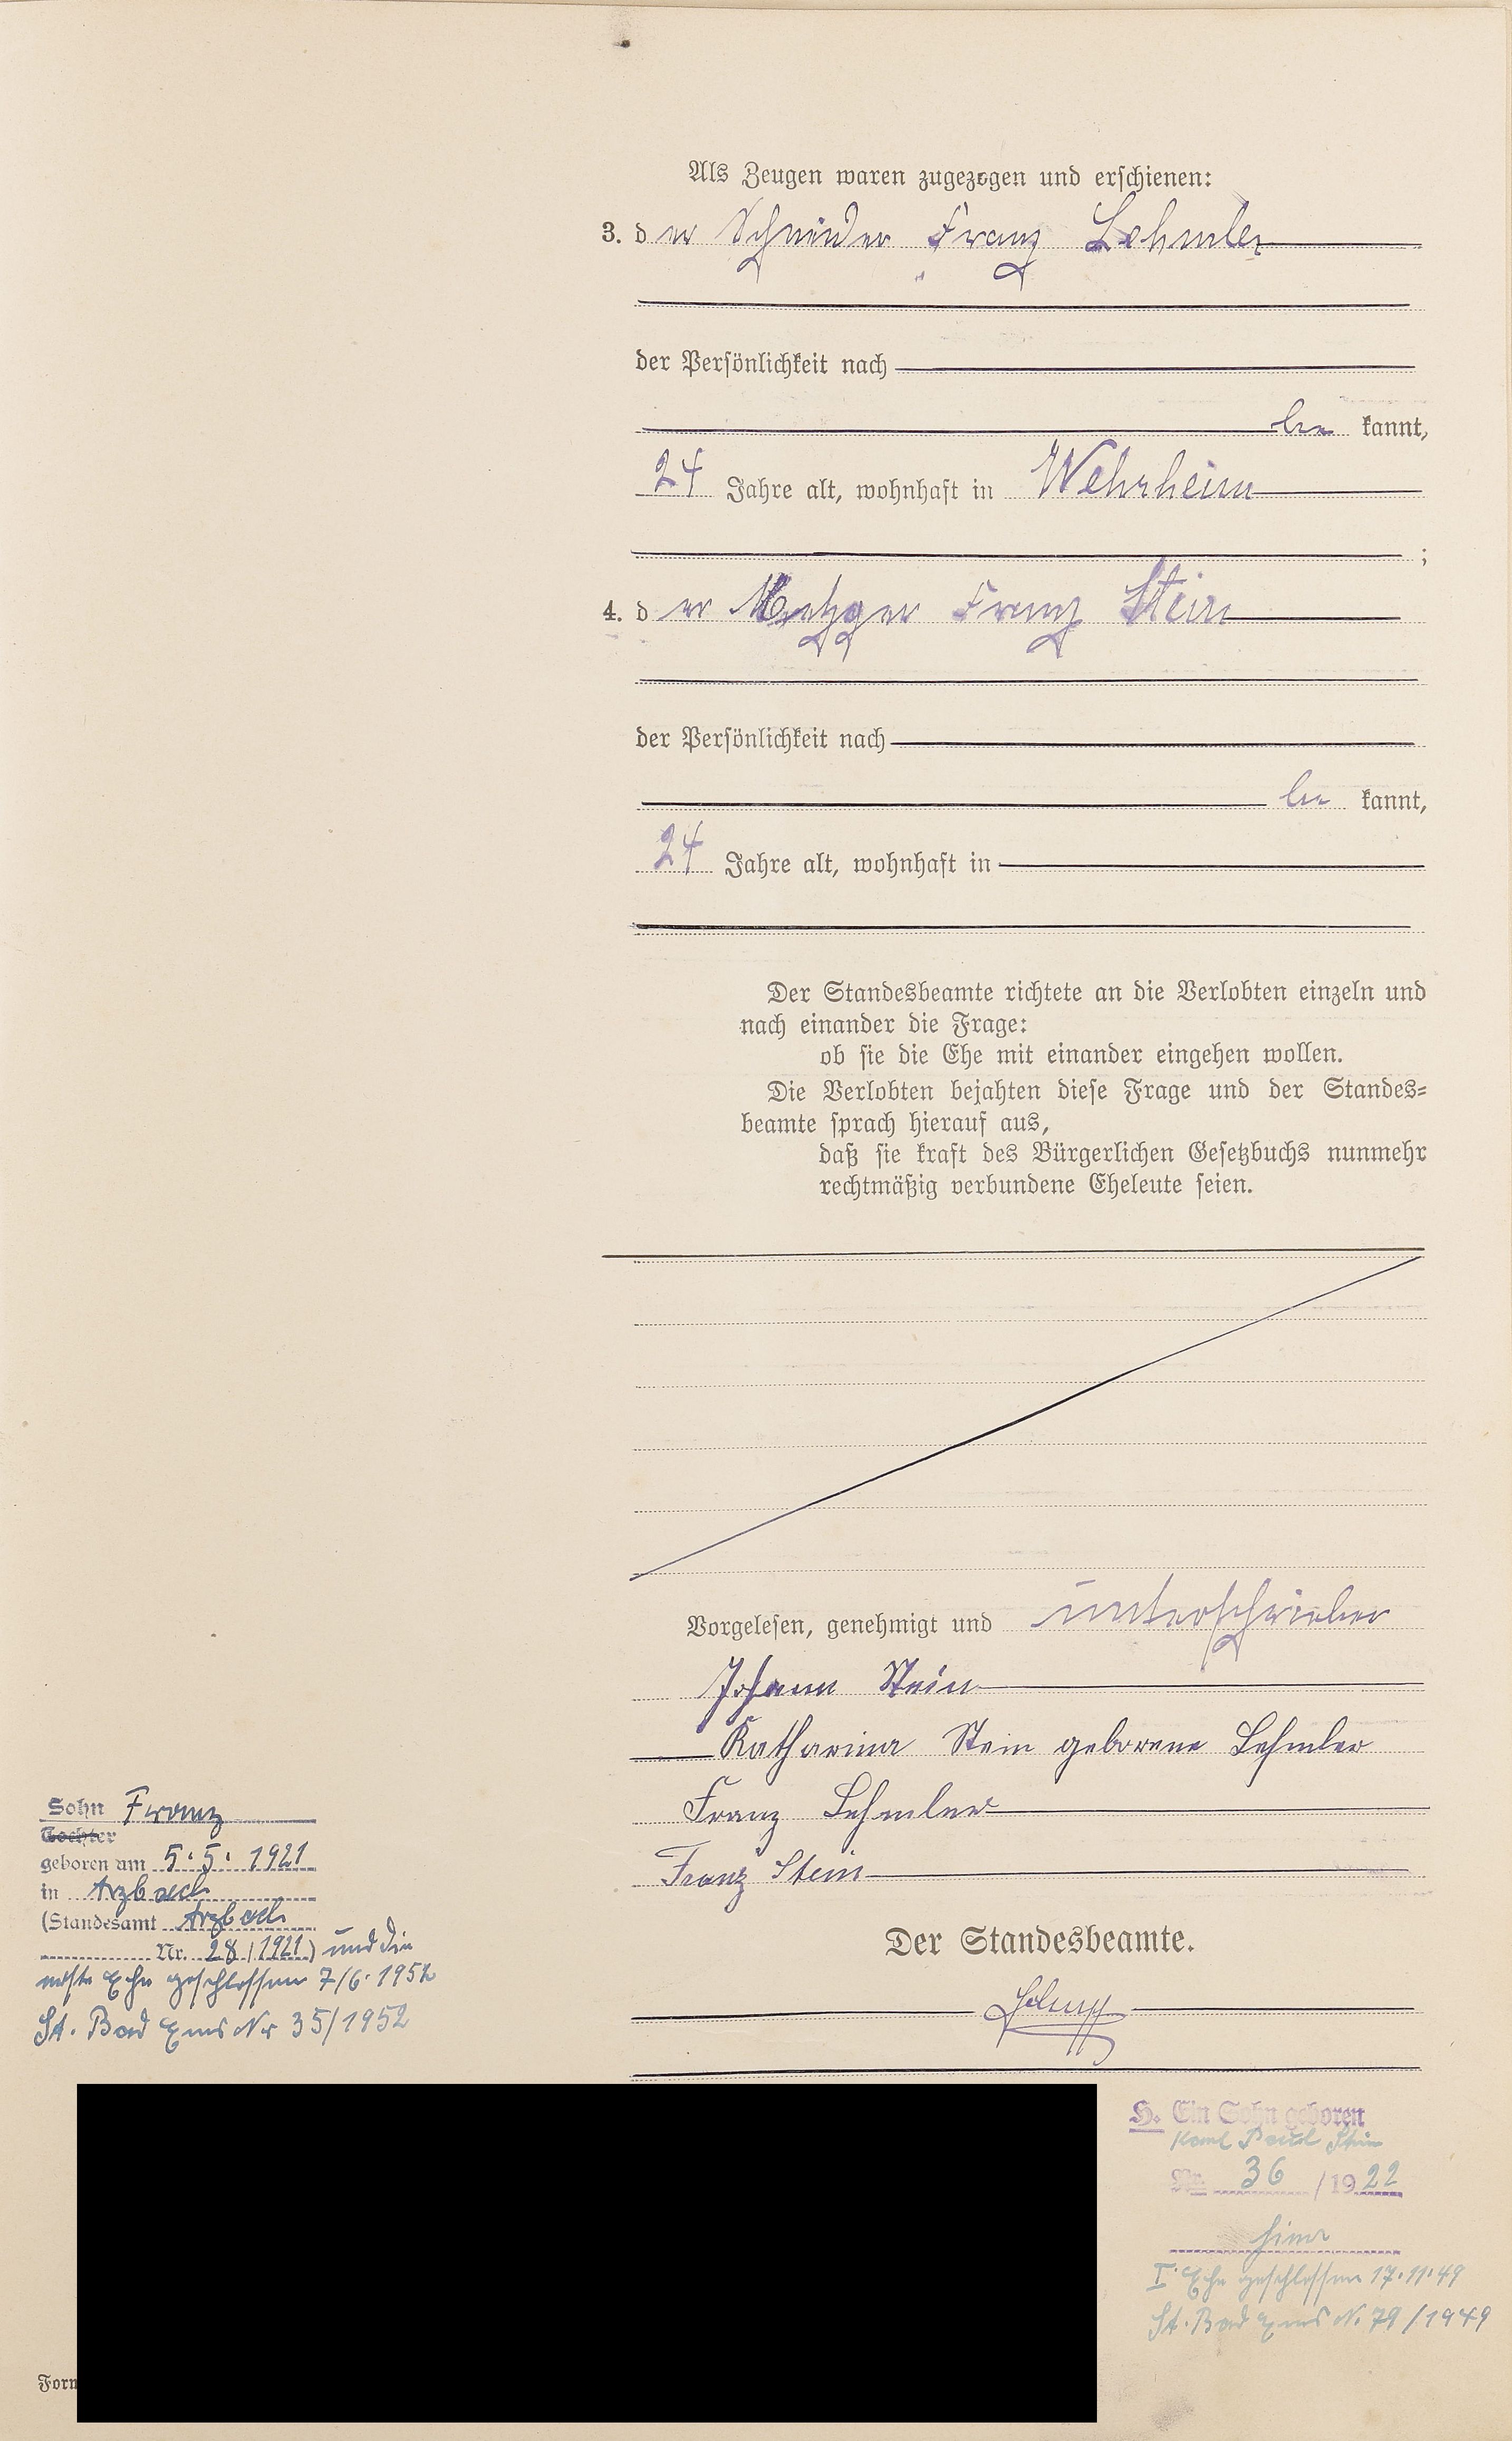 Als Zeugen waren zugezogen und erschienen:
3. der Schneider Franz Lehmler
der Persönlichkeit nach
be kannt,
24 Jahre alt, wohnhaft in Wehrheim
;
4. der Metzger Franz Stein
der Persönlichkeit nach
be kannt,
24 Jahre alt, wohnhaft in
Der Standesbeamte richtete an die Verlobten einzeln und
nach einander die Frage:
ob sie die Ehe mit einander eingehen wollen.
Die Verlobten bejahten diese Frage und der Standes-
beamte sprach hierauf aus,
daß sie kraft des Bürgerlichen Gesetzbuchs nunmehr
rechtmäßig verbundene Eheleute seien.
Vorgelesen, genehmigt und unterschrieben
Johann Stein
Katharina Stein geborene Lehmler
Franz Lehmler
Franz Stein
Der Standesbeamte.
Sohn Franz
Tochter
geboren am 5.5.1921
in Arzbach
(Standesamt Arzbach
Nr. 28/1921) und die
erste Ehe geschlossen 7/6.1952
St. Bad Ems Nr 35/1952
H. Ein Sohn geboren
Karl Paul Stein
Nr. 36 /1922
hier
I. Ehe geschlossen 17.11.49
St. Bad Ems N. 79/1949
Form